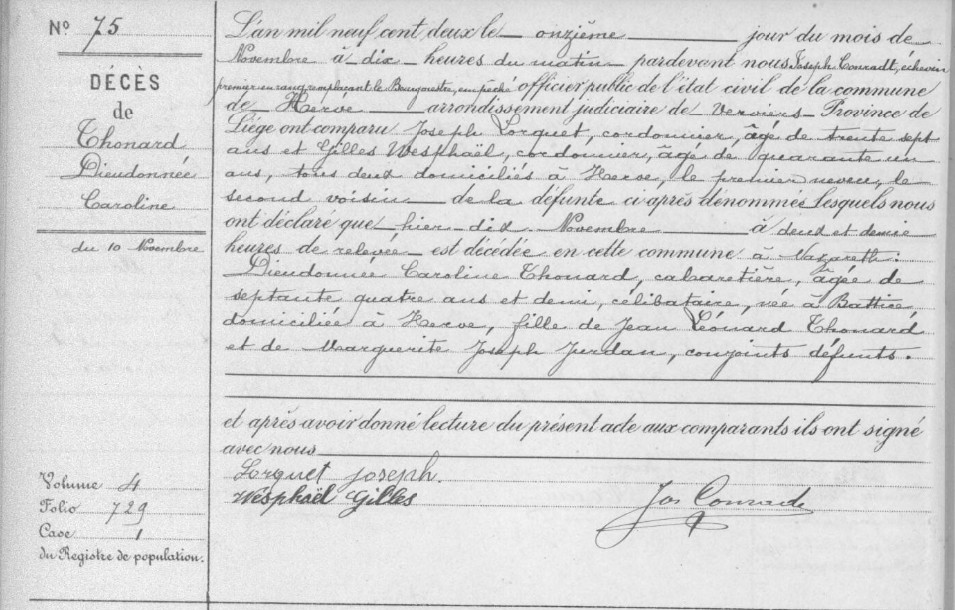 N° 75
DÉCÈS
de
Thonard
Dieudonnée
Caroline
du 10 Novembre
Volume 4
Folio 729
Case 1
du Registre de population.
L'an mil neuf cent deux le onzième jour du mois de
Novembre à dix heures du matin pardevant nous Joseph Conradt, echevin
premier en rang remplaçant le Bourgmestre, empêché officier public de l'état civil de la commune
de Herve arrondissement judiciaire de Verviers Province de
Liége ont comparu Joseph Lorquet, cordonnier, âgé de trente sept
ans et Gilles Wesphaël, cordonnier, âgé de quarante un
ans, tous deux domiciliés à Herve, le premier neveu, le
second voisin de la défunte ci après dénommée Lesquels nous
ont déclaré que hier dix Novembre à deux et demie
heures de relevée est décédée en cette commune à Nazareth:
Dieudonnée Caroline Thonard, cabaretière, âgée de
septante quatre ans et demi, célibataire, née à Battice,
domiciliée à Herve, fille de Jean Léonard Thonard
et de Marguerite Joseph Jurdan, conjoints défunts.
et après avoir donné lecture du présent acte aux comparants ils ont signé
avec nous
Lorquet Joseph.
Wesphaël Gilles
Jos Conradt